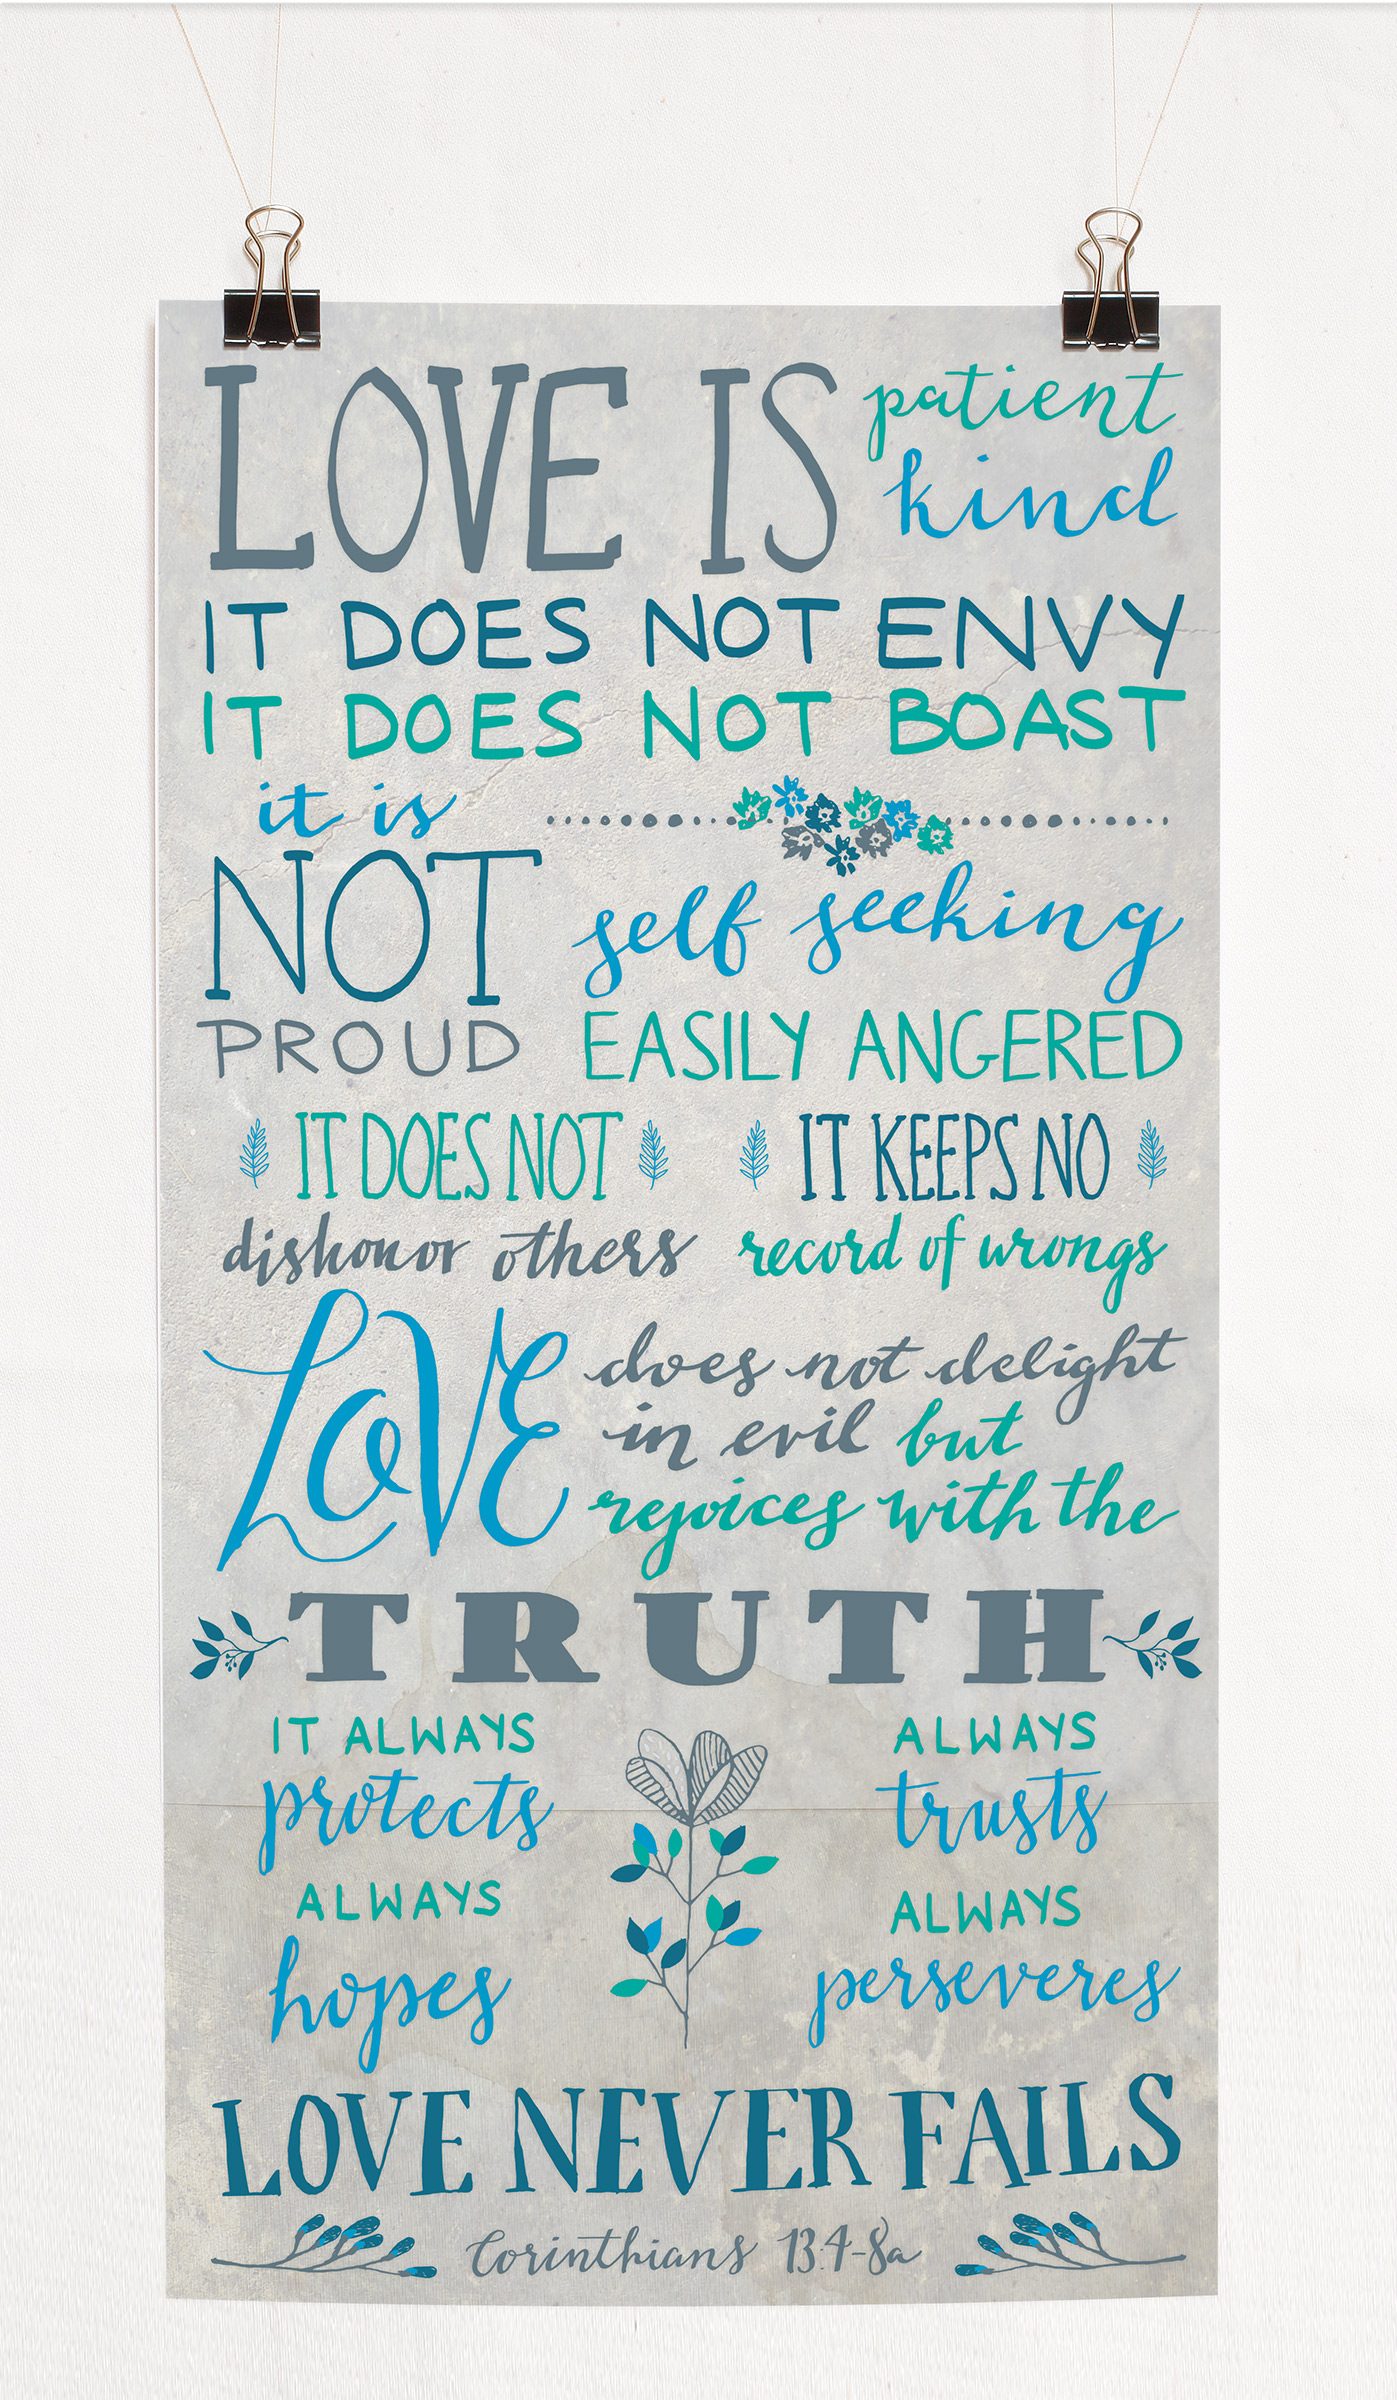 LOVE IS patient
kind
IT DOES NOT ENVY
IT DOES NOT BOAST
it is
NOT
PROUD
self seeking
EASILY ANGERED
IT DOES NOT
dishonor others
IT KEEPS NO
record of wrongs
LOVE does not delight
in evil but
rejoices with the
TRUTH
IT ALWAYS
protects
ALWAYS
trusts
ALWAYS
hopes
ALWAYS
perseveres
LOVE NEVER FAILS
Corinthians 13:4-8a